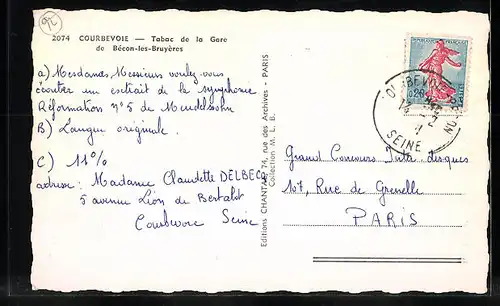 92
2074 COURBEVOIE — Tabac de la Gare
de Bécon-les-Bruyères
a) Mesdames, Messieurs voulez-vous
écouter un extrait de la symphonie
Réformation n°5 de Mendelssohn
B) L'angue originale.
C) 11%
adresse: Madame Claudette DELBECQ
5 avenue Léon de Bertalot
Courbevoie Seine
Editions CHANTAL, 74, rue des Archives - PARIS
Collection M. L. B.
REPUBLIQUE FRANÇAISE
0,20
COURBEVOIE
SEINE
Grand Concours Inter-disques
107, Rue de Grenelle
PARIS